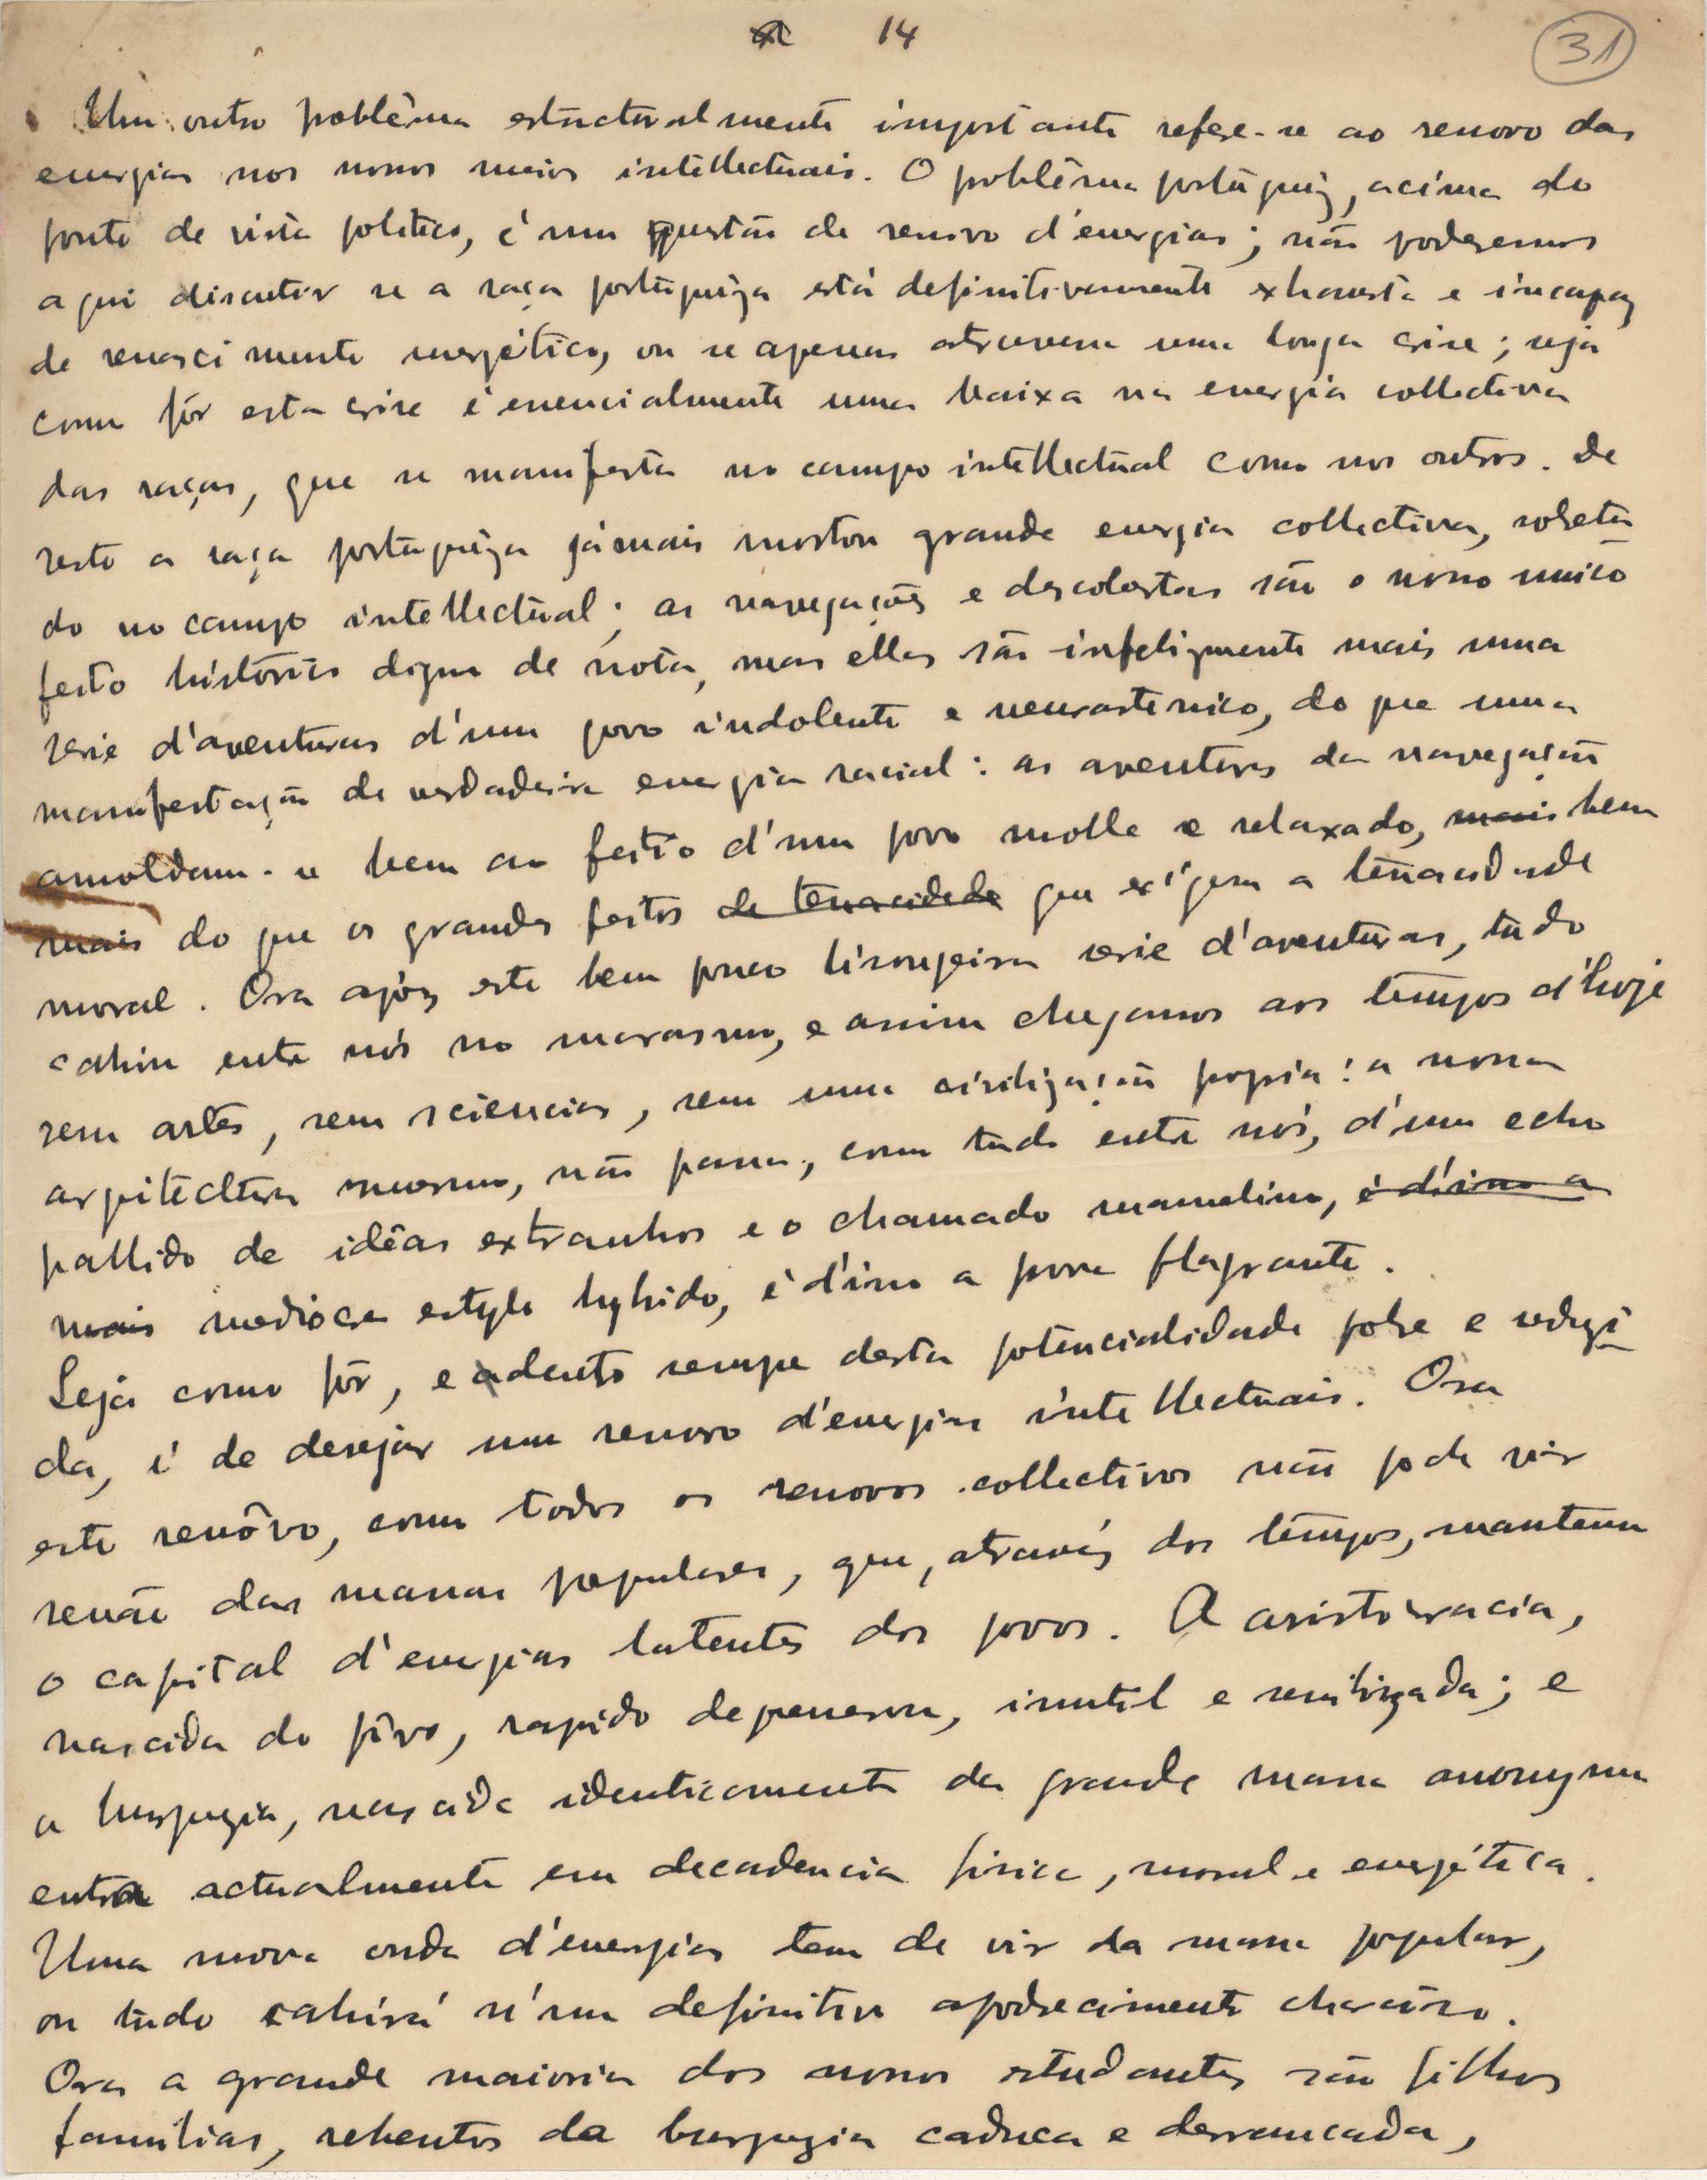 14
31
Um outro problêma estructuralmente importante refere-se ao renovo das
energias nos nossos meios intellectuais. O problêma portuguez, acima do
ponto de vista politico, é um questão de renovo d'energias; não poderemos
aqui discutir se a raça portuguêza está definitivamente exhausta e incapaz
de renascimento energético, ou se apenas atravessa uma longa crise; seja
como fôr esta crise é essencialmente uma baixa na energia collectiva
das raças, que se manifesta no campo intellectual como nos outros. De
resto a raça portuguêza jámais mostrou grande energia collectiva, sobretu
do no campo intellectual; as navegações e descobertas são o nosso unico
feito histórico digno de nota, mas ellas são infelizmente mais uma
serie d'aventuras d'um povo indolente e neurastenico, do que uma
manifestação de verdadeira energia racial: as aventuras da navegação
amoldam-se bem ao feitio d'um povo molle e relaxado, mais bem
mais do que os grandes feitos de tenacidade que exigem a tenacidade
moral. Ora após esta bem pouco lisongeira serie d'aventuras, tudo
cahiu entre nós no marasmo, e assim chegamos aos tempos d'hoje
sem artes, sem sciencias, sem uma civilização propria: a nossa
arquitectura mesmo, não passa, como tudo entre nós, d'um echo
pallido de idêas extranhas e o chamado manuelino, é d'isso a
mais mediocre estylo hybrido, é d'isso a prova flagrante.
Seja como fôr, e adentro sempre desta potencialidade pobre e reduzi
da, é de desejar um renovo d'energias intellectuais. Ora
este renôvo, como todos os renovos collectivos não pode vir
senão das massas populares, que, através dos tempos, mantem
o capital d'energias latentes dos povos. A aristocracia,
nascida do pôvo, rapido degenerou, inutil e senilizada; e
a burguezia, nascida identicamente da grande massa anonyma
entra actualmente em decadencia fisica, moral e energética.
Uma nova onda d'energias tem de vir da massa popular,
ou tudo cahirá n'um definitivo apodrecimento
Ora a grande maioria dos nossos estudantes são filhos
familias, rebentos da burguezia caduca e derrancada,